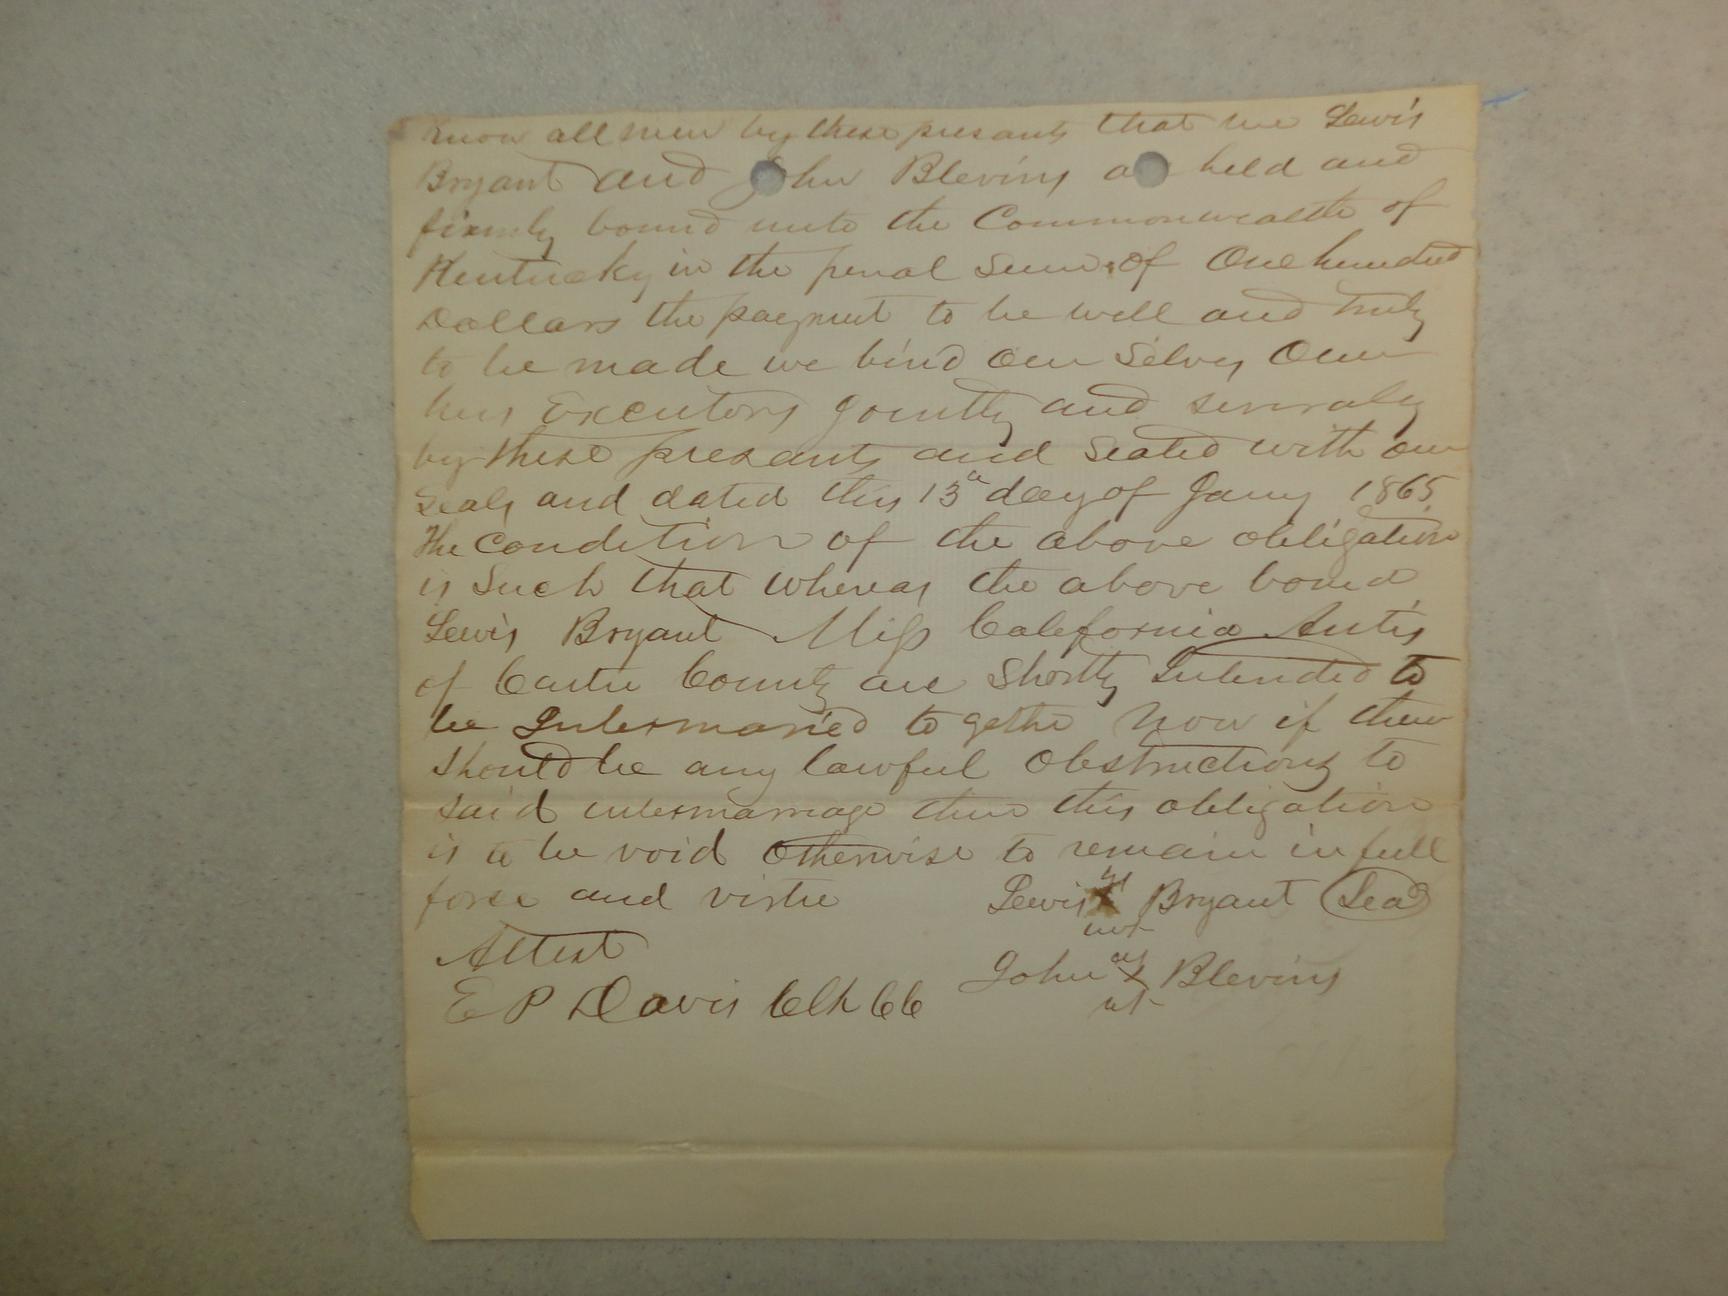 Know all men by these presants that we Lewis
Bryant and John Blevins a held and
firmly bound unto the Commonwealth of
Kentucky in the penal Sum of One hundred
Dollars the payment to be well and truly
to be made we bind our Selves Our
heirs Executors Jointly and severaly
by these presants and Sealed with our
Seals and dated this 13th day of Jany 1865
The Condition of the above obligation
is Such that whereas the above bound
Lewis Bryant Miss California Antis
of Carter County are Shortly Intended to
be Intermaried to gethe Now if there
Should be any lawful Obstructions to
said intermarriage then this obligation
is to be void Otherwise to remain in full
forse and virtue
Lewis X Bryant Seal
John X Blevins
Attest
E P Davis Clk CC